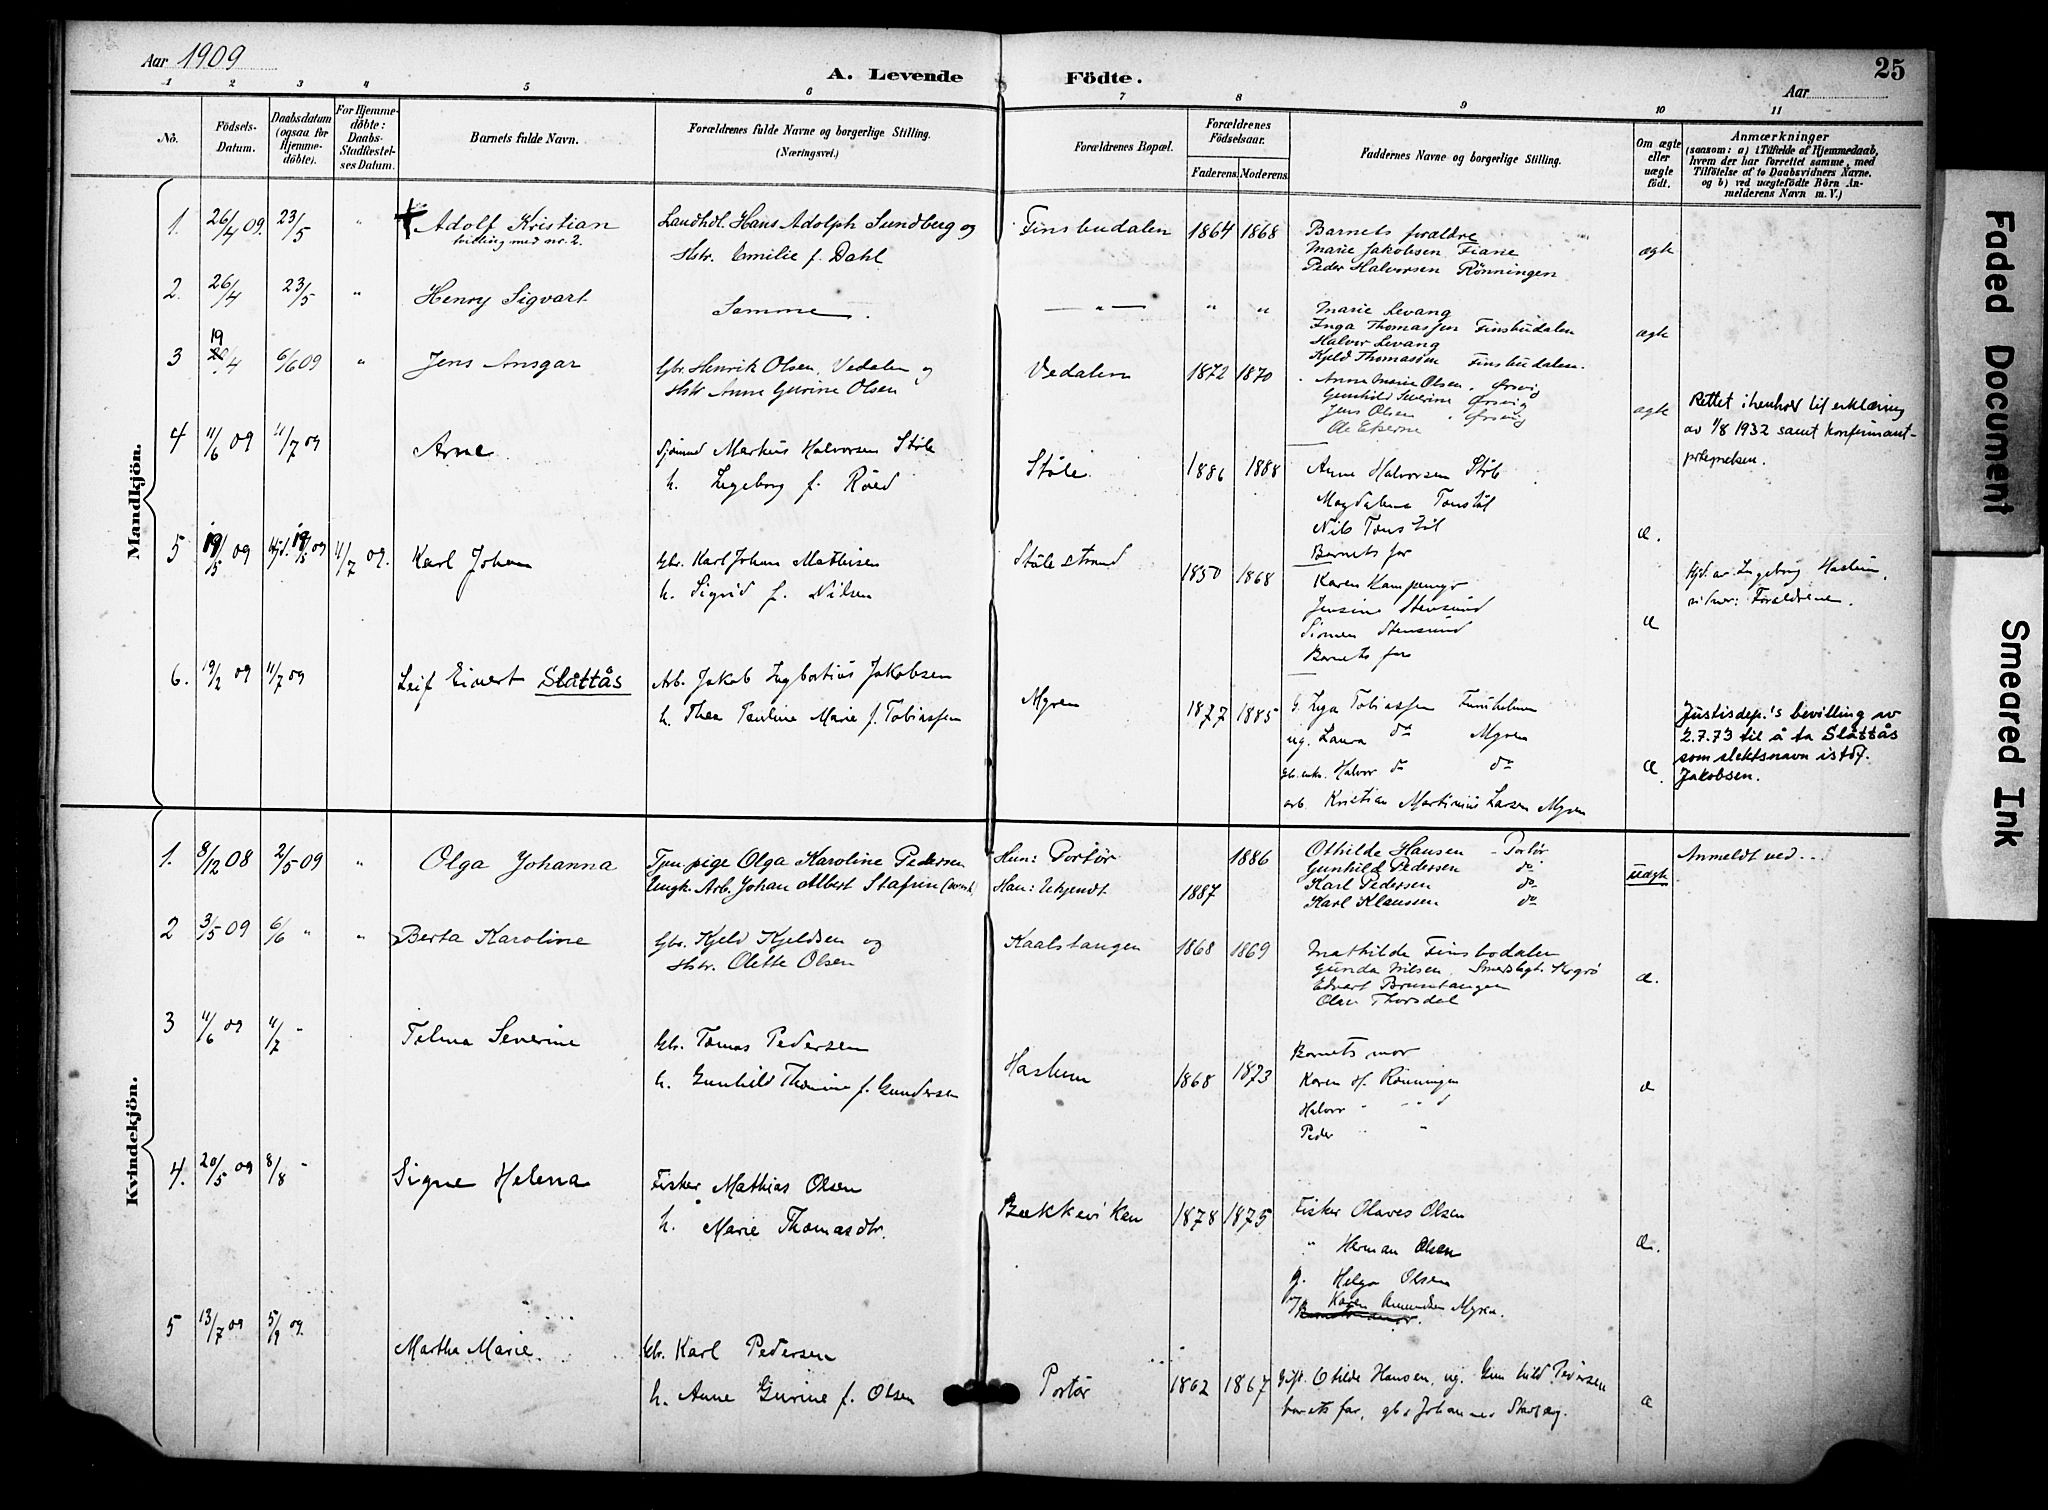 Aar 1909
A. Levende Födte.
25
Aar
1 2 3 4 5 6 7 8 9 10 11
No.
Födsels-Datum.
Daabsdatum (ogsaa for Hjemmedöbte).
For Hjemmedöbte: Daabs-Stadfæstelses Datum.
Barnets fulde Navn.
Forældrenes fulde Navne og borgerlige Stilling. (Næringsvei.)
Forældrenes Bopæl.
Forældrenes Födselsaar.
Faderens. Moderens.
Faddernes Navne og borgerlige Stilling.
Om ægte eller uægte födt.
Anmærkninger
(saasom: a) i Tilfælde af Hjemmedaab,
hvem der har forrettet samme, med
Tilföielse af to Daabsvidners Navne.
og b) ved uægtefödte Börn An-
melderens Navn m. V.)
Mandkjön.
1. 26/4 09. 23/5 " Adolf Kristian
tvilling med nr. 2.
Landhdl. Hans Adolph Sundberg og
Hstr. Emilie f. Dahl
Finsbudalen 1864 1868
Barnets forældre
Marie Jakobsen Fiane
Peder Halvorsen Rönningen
ægte
2. 26/4 23/5 " Henry Sigvart
Samme
" " "
Marie Levang
Inga Thomassen Finsbudalen
Halvor Levang
Kjeld Thomassen Finsbudalen.
ægte
3 19/4 6/6 09 " Jens Ansgar
Gbr. Henrik Olsen, Vedalen og
Hstr Anne Gurine Olsen
Vedalen 1872 1870
Anne Marie Olsen, Örsvig
Gunhild Severine Örsvig
Jens Olsen Örsvig
Ole Ekerne
ægte
Rettet i henhold til erklæring
av 1/8 1932 samt konfirmant-
4 11/6 09 11/7 09 Arne
Sjömd Markus Halvorsen Stöle
h. Ingeborg f. Röed
Støle. 1886 1888
Anne Halvorsen Stöle
Magdalene Tonstöl
Nils Tonstöl
Barnets far
æ.
5 19/5 09 Hjd. 19/5 09 11/7 09. Karl Johan
Gbr. Karl Johan Mathisen
h. Sigrid f. Nilsen
Stölestrand 1850 1868
Karen Kampenyr
Jensine Stensund
Simen Stensund
Barnets far
æ
Hjd. av Ingeborg Haslum,
vitner: Forældrene.
6. 19/2 09 11/7 09 Leif Eivert Slåttås
Arb. Jakob Ingbertius Jakobsen
h. Thea Pauline Marie f. Tobiassen
Myren 1877 1885
g. Inga Tobiassen
ug. Laura do Myren
Halvor do do
arb. Kristian Martinius Larsen Myren
æ
Justisdep.'s bevilling av
2.7.73 til å ta Slåttås
som slektsnavn istdf.
Jakobsen.
Kvindekjön.
1. 8/12 08 2/5 09 " Olga Johanna
Tjen. pige Olga Karoline Pedersen
Ungk. Arb. Johan Albert Stafrin
Hun: Portör 1886
Han: Ukjendt 1887
Othilde Hansen - Portör
Gunhild Pedersen do
Karl Pedersen do
Karl Klaussen do
uægte
Anmeldt ved...
2 3/5 09 6/6 " " Berta Karoline
Gbr. Kjeld Kjeldsen og
Hstr. Olette Olsen
Kaalstangen 1868 1869
Mathilde Finsbodalen
Gunda Nilsen,
Edvart Bruntangen
Olav Thorsdal
æ.
3 11/6 09 11/7 " Telma Severine
Gbr. Tomas Pedersen
h. Gunhild Thomine f. Gundersen
Haslum 1868 1873
Barnets mor
Karen H. Rönningen
Halvor " "
Peder " "
æ
4. 20/5 09 8/8 " Signe Helena
Fisker Mathias Olsen
h. Marie Thomasdtr.
Bækkeviken 1878 1875
Fisker Olaves Olsen
" Herman Olsen
g. Helga Olsen
ug Karen Amundsen Myren.
æ.
5 13/7 09 5/9 09. Martha Marie.
Gbr. Karl Pedersen
h. Anne Gurine f. Olsen
Portör 1862 1867
Gift. Otilde Hansen, ug. Gunhild Pedersen
barnets far, gbr Johannes
æ
Faded Document
Smeared Ink